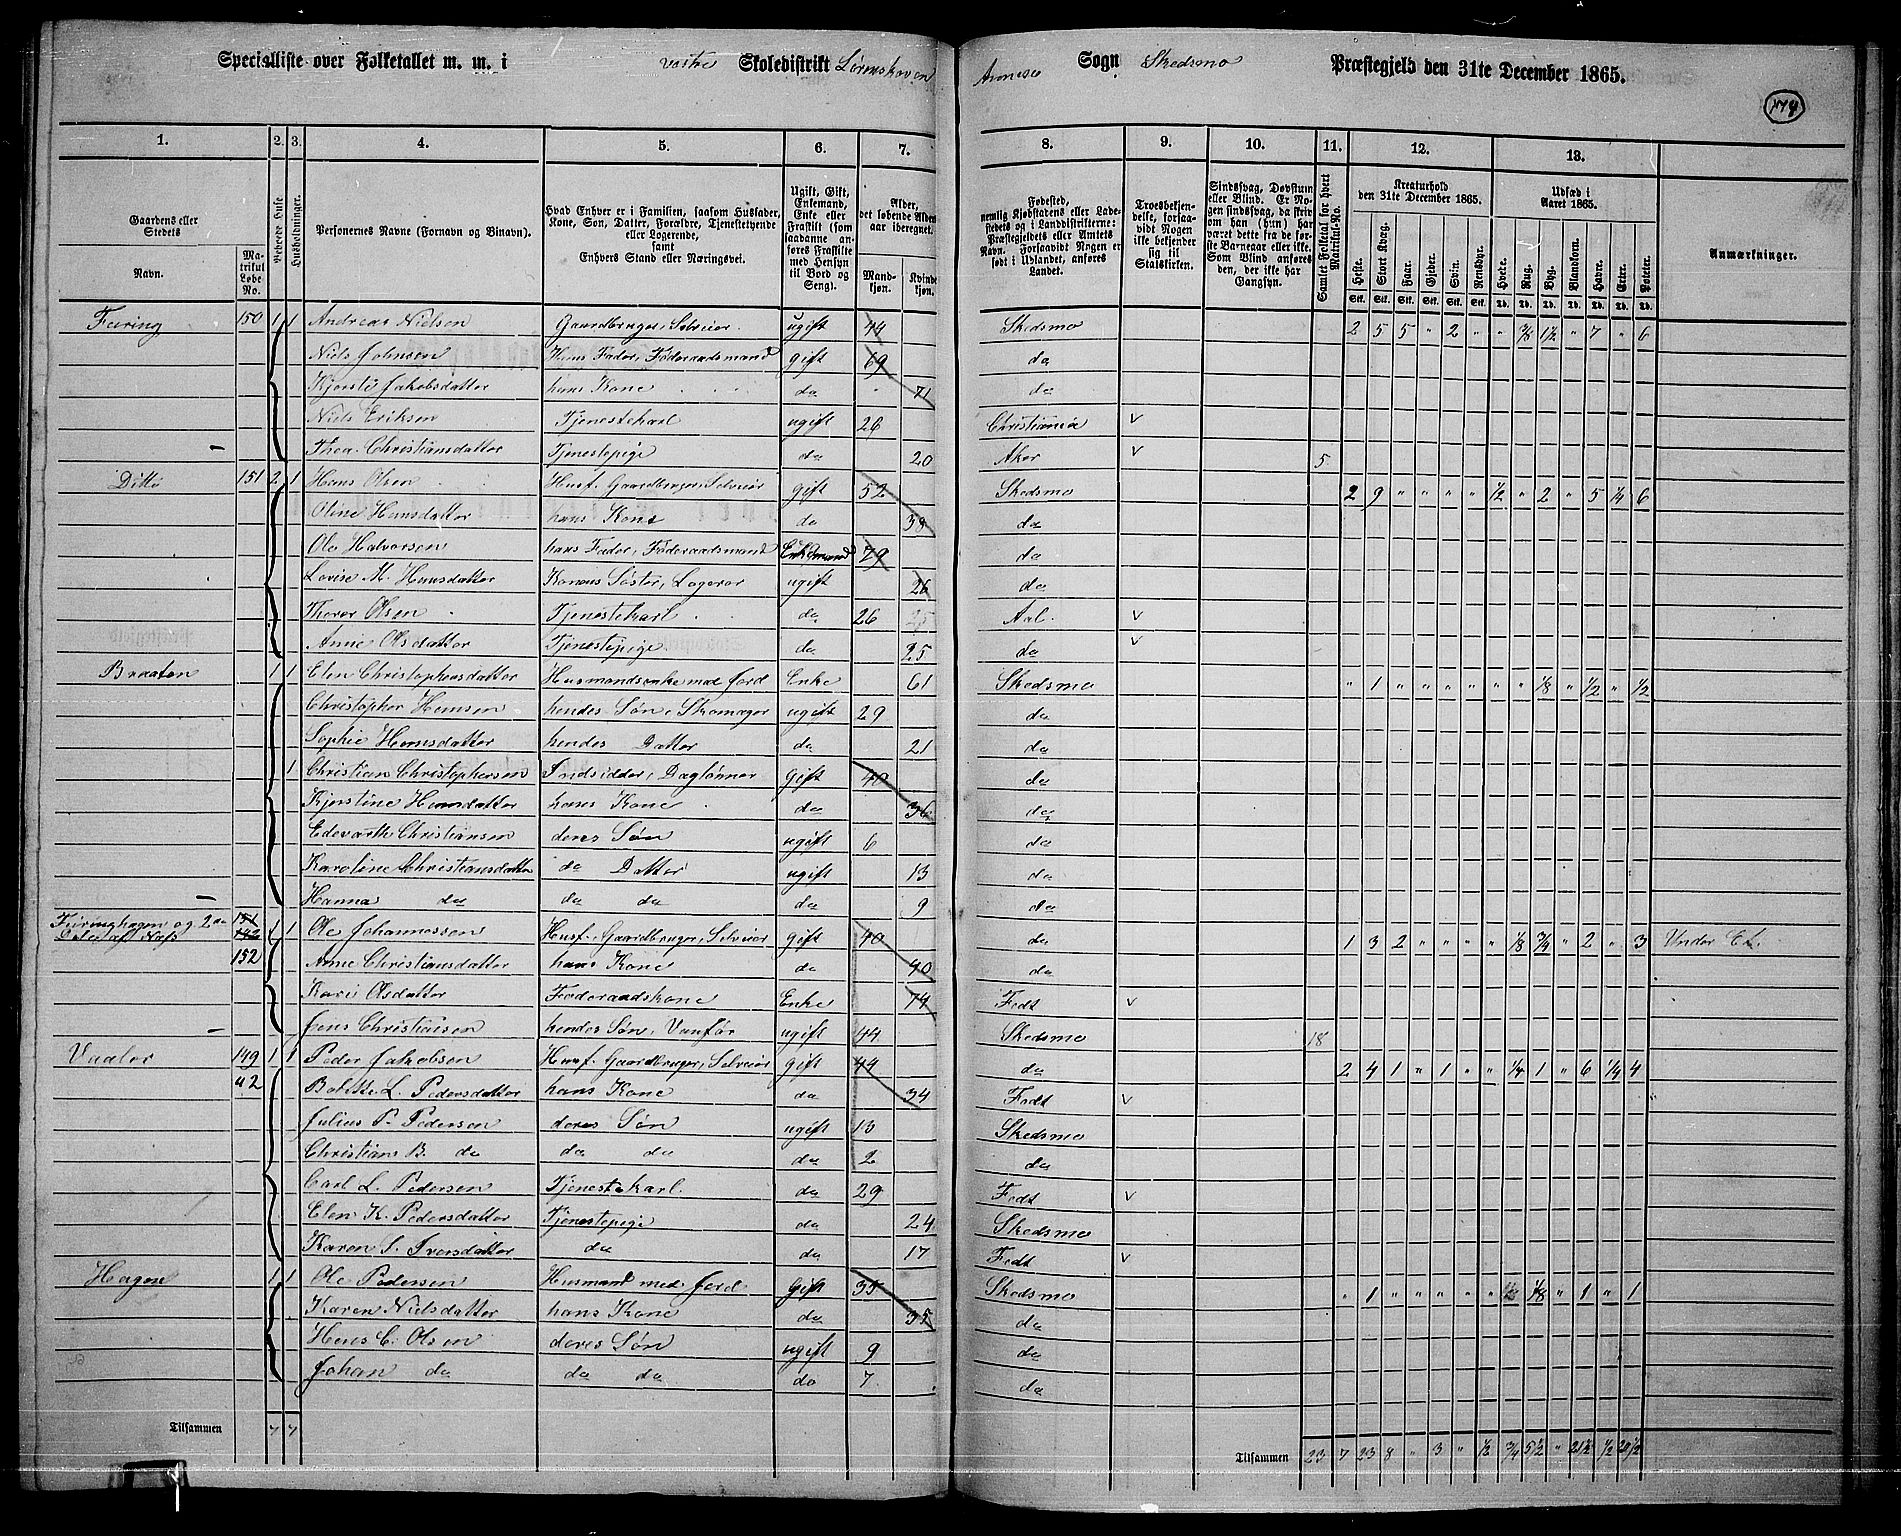 Specialliste over Folketallet m. m. i vestre Skoledistrikt Lørenskoven Annex Sogn Skedsmo Præstegjeld den 31te December 1865.
174
1. 2. 3. 4. 5. 6. 7. 8. 9. 10. 11. 12. 13.
Gaardens eller Stedets Navn.
Matrikul Løbe-No.
Beboede Huse.
Husholdninger.
Personernes Navne (Fornavn og Binavn).
Hvad Enhver er i Familien, saasom Husfader, Kone, Søn, Datter, Forældre, Tjenestetyende eller Logerende, samt Enhvers Stand eller Næringsvei.
Ugift, Gift, Enkemand, Enke eller Fraskilt (som saadanne anføres Fraskilte med Hensyn til Bord og Seng).
Alder, det løbende Alders-aar iberegnet.
Mandkjøn. Kvindekjøn.
Fødested, nemlig Kjøbstadens eller Ladestedets og i Landdistrikterne: Præstegjeldets eller Amtets Navn. Forsaavidt Nogen er født i Udlandet, anføres Landet.
Troesbekjendelse, forsaavidt Nogen ikke bekjender sig til Statskirken.
Sindssvag, Døvstum eller Blind. Er Nogen sindssvag, da skriv om han (hun) har været dette fra de første Barneaar eller ikke. Som Blind anføres den, der ikke har Gangsyn.
Samlet Folketal for hvert Matrikul-No.
Kreaturhold den 31te December 1865.
Heste. Stort Kvæg. Faar. Gjeder. Svin. Rensdyr.
Udsæd i Aaret 1865.
Hvete. Rug. Byg. Blandkorn. Havre. Erter. Poteter.
Anmærkninger.
Færing 150 1 1 Andreas Nielsen Gaardbruger, Selveier ugift 44 Skedsmo 2 5 5 " 2 " " 3/8 1 1/2 " 7 " 6
Niels Johnsen Hans Fader, Føderaadsmand gift 69 do
Kjersti Jakobsdatter hans Kone do 71 do
Niels Eriksen Tjenestekarl ugift 26 Christiania v
Thea Christiansdatter Tjenestepige do 20 Aker v 5
Ditto 151 2 1 Hans Olsen Husf. Gaardbruger, Selveier gift 52 Skedsmo 2 9 " " " " 1/2 " 2 " 5 1/4 6
Oline Hansdatter hans Kone do 38 do
Ole Halvorsen hans Fader, Føderaadsmand Enkemand 79 do
Lovise M. Hansdatter Konens Søster, Logerer ugift 26 do
Thorer Olsen Tjenestekarl do 26 Aal v
Anne Olsdatter Tjenestepige do 25 do v
Braaten 1 1 Elen Christophersdatter Husmandsenke med Jord Enke 61 Skedsmo " 1 " " " " " " 1/8 " 1/2 " 1/2
Christopher Hansen hendes Søn, Skomager ugift 29 do
Sophie Hansdatter hendes Datter do 21 do
1 Christian Christophersen Indsidder, Daglønner gift 40 do
Kjerstine Hansdatter hans Kone do 36 do
Edevarth Christiansen deres Søn ugift 6 do
Karoline Christiansdatter do Datter ugift 13 do
Hanna do do do do 9 do
Færinghagen og 2de Dele af Næs 151 142 1 1 Ole Johannessen Husf. Gaardbruger, Selveier gift 40 do 1 3 2 " " " " 1/8 3/4 " 2 " 3 Under Et.
152 Anne Christiansdatter hans Kone do 40 do
Kari Olsdatter Føderaadskone Enke 74 Fedt v
Jens Christiansen hendes Søn, Vanfør ugift 44 Skedsmo 18
Vaaler 149 1 1 Peder Jakobsen Husf. Gaardbruger, Selveier gift 44 do 2 4 1 " 1 " " 1/4 1 " 6 1/4 4
42 Bolette L. Pedersdatter hans Kone do 34 Fedt v
Julius P. Pedersen deres Søn ugift 13 Skedsmo
Christians B. do do do do 2 do
Carl L. Pedersen Tjenestekarl do 29 Fedt v
Elen K. Pedersdatter Tjenestepige do 24 Skedsmo
Karen S. Iversdatter do do 17 Fedt v
Hagen 1 1 Ole Pedersen Husmand med Jord gift 35 Skedsmo " 1 " " " " " 1/8 " 1 " 1
Karen Nielsdatter hans Kone do 35 do
Hans C. Olsen deres Søn ugift 9 do
Johan do do do do 7 do
Tilsammen 7 7 Tilsammen 23 7 23 8 " 3 " 1/2 3/4 5 1/2 " 21 1/2 1/2 20 1/2